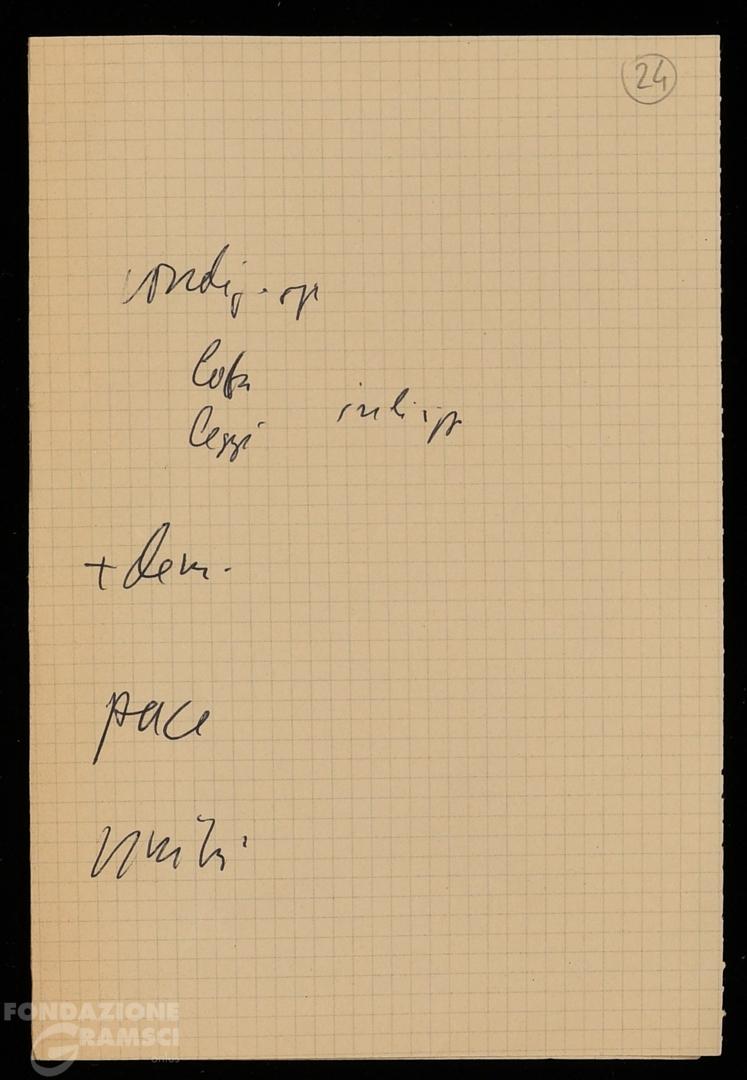 24
condiz. op
lotta
leggi
+ dem.
pace
unità
FONDAZIONE
GRAMSCI
onlus